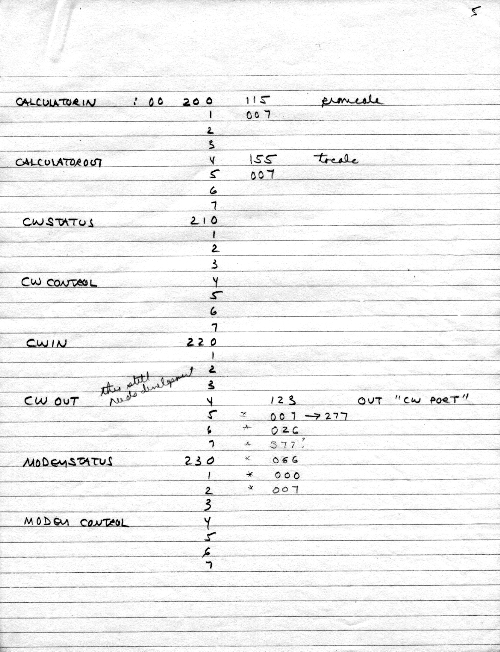 5
CALCULATORIN : 00 200 115 fromcalc
1 007
2
3
CALCULATOROUT 4 155 tocalc
5 007
6
7
CWSTATUS 210
1
2
3
CW CONTROL 4
5
6
7
CWIN 220
1
2
this still needs development
3
CW OUT 4 123 OUT "CW PORT"
5 * 007 → 277
6 * 026
7 * 377?
MODEMSTATUS 230 * 066
1 * 000
2 * 007
3
MODEM CONTROL 4
5
6
7